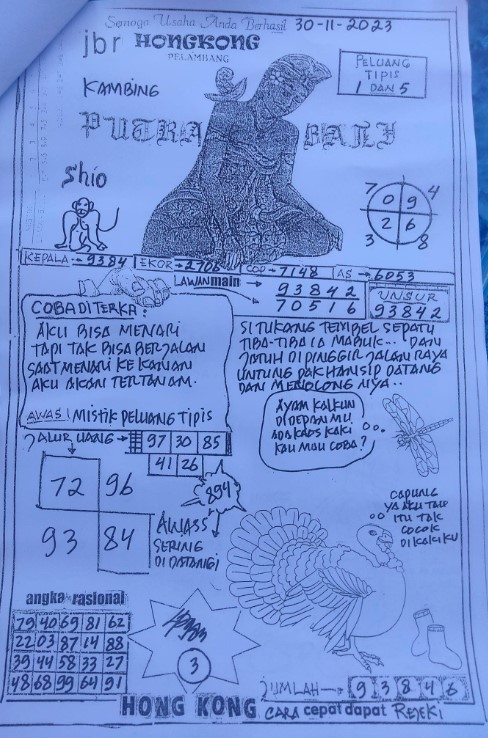 Semoga Usaha Anda Berhasil 30-11-2023
jbr HONGKONG
PELAMBANG
PELUANG
TIPIS
1 DAN 5
KAMBING
PUTRA BALI
Shio
7 4
0 9
2 6
3 8
KEPALA → 9384 EKOR → 2706 COP → 7148 AS → 6053
LAWAN main → 93842
→ 70516
UNSUR
93842
COBA DITERKA:
AKU BISA MENARI
TAPI TAK BISA BERJALAN
SAAT MENARI KE KANAN
AKU AKAN TERTANAM.
AWAS! MISTIK PELUANG TIPIS
SI TUKANG TEMBEL SEPATU
TIBA-TIBA IA MABUK... DAN
JATUH DI PINGGIR JALAN RAYA
UNTUNG PAK HANSIP DATANG
DAN MENOLONG NIYA..
AYAM KALKUN
DI DEPANMU
ADA KAOS KAKI
KAU MAU COBA?
JALUR UANG → 97 30 85
41 26
894
72 96
93 84
AWASS
SERING
DI DATANGI
CAPUNG
YA AKU TAU
ITU TAK
COCOK
DI KAKIKU
angka rasional
79 40 69 81 62
22 03 87 14 88
39 44 58 33 27
48 68 99 64 91
3
JUMLAH → 9 3 8 4 6
HONG KONG CARA cepat dapat REJEKI